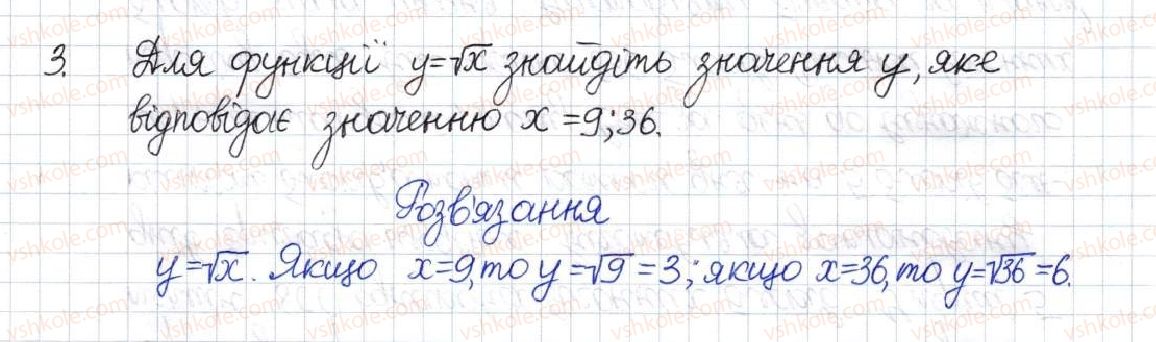 3. Для функції y=√x знайдіть значення y, яке
відповідає значенню x=9; 36.
Розв'язання
y=√x. Якщо x=9, то y=√9=3; якщо x=36, то y=√36=6.